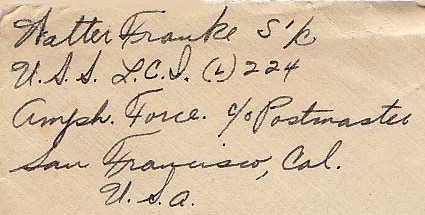 Walter Franke S 1/c
U.S.S. L.C.I. (L) 224
Amph. Force. c/o Postmaster
San Francisco, Cal.
U.S.A.